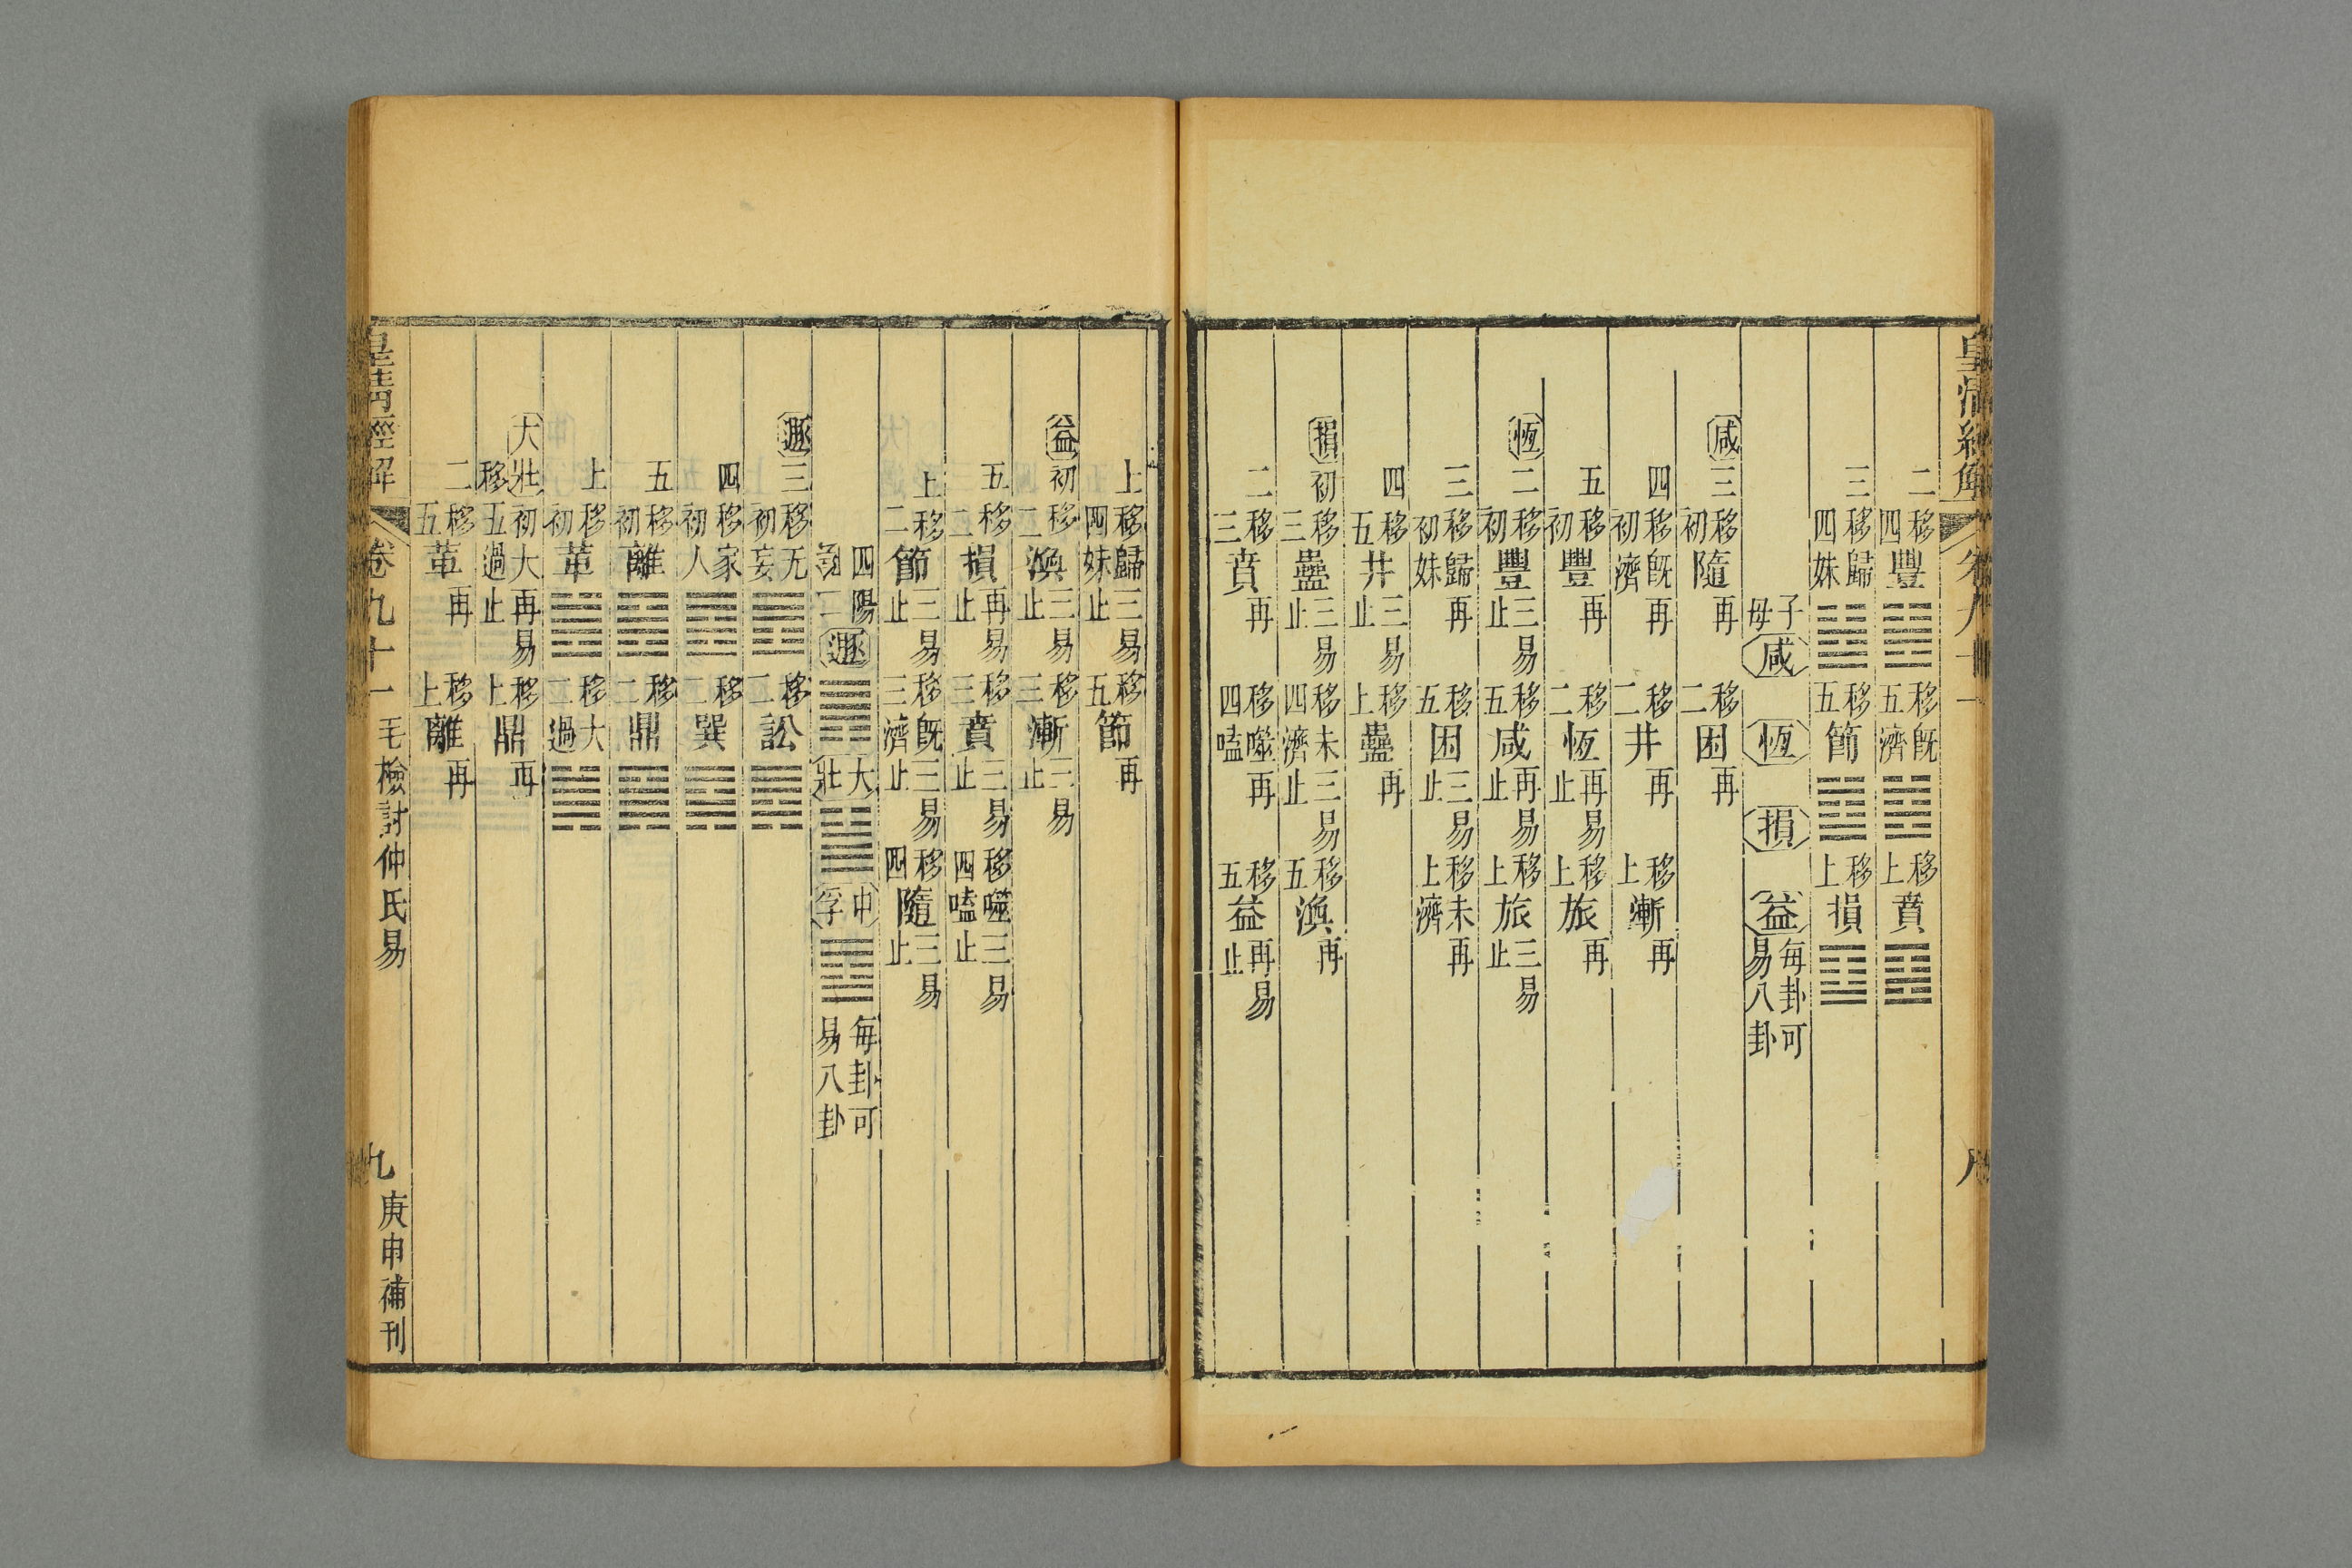 皇清經解 卷九十一 八
二移四豐 移五既濟 移上賁
三移四歸妹 移五節 移上損
子母咸 恆 損 益每卦可易八卦
咸三移初隨再 移二困再
四移初既濟再 移二井再 移上漸再
五移初豐再 移二恆再易止 移上旅再
恆二移初豐三易止 移五咸再易止 移上旅三易止
三移初歸妹再 移五困三易止 移上未濟再
四移五井三易止 移上蠱再
損初移三蠱三易止 移四未濟三易止 移五渙再
二移三賁再 移四噬嗑再 移五益再易止
上移四歸妹三易止 移五節再
益初移二渙三易止 移三漸三易止
五移二損再易止 移三賁三易止 移四噬嗑三易止
上移二節三易止 移三既濟三易止 移四隨三易止
四陽二遯 大壯 中孚 每卦可易八卦
遯三移初无妄 移二訟
四移初家人 移二巽
五移初離 移二鼎
上移初革 移二大過
大壯初移五大過再易止 移上鼎再
二移五革再 移上離再
皇淸經解 卷九十一 毛檢討仲氏易 九 庚申補刊